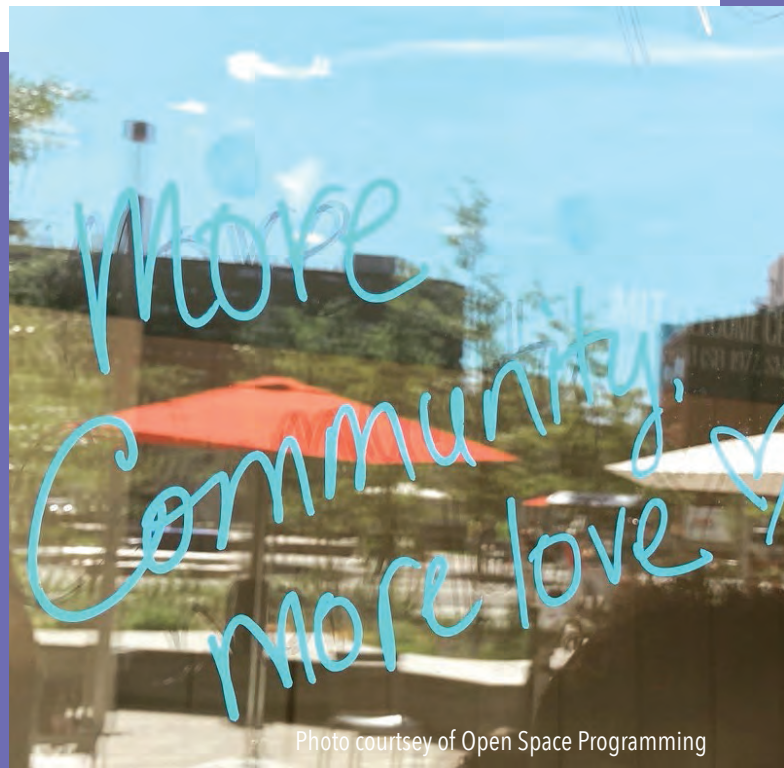 more
Community,
more love
MIT
Photo courtsey of Open Space Programming